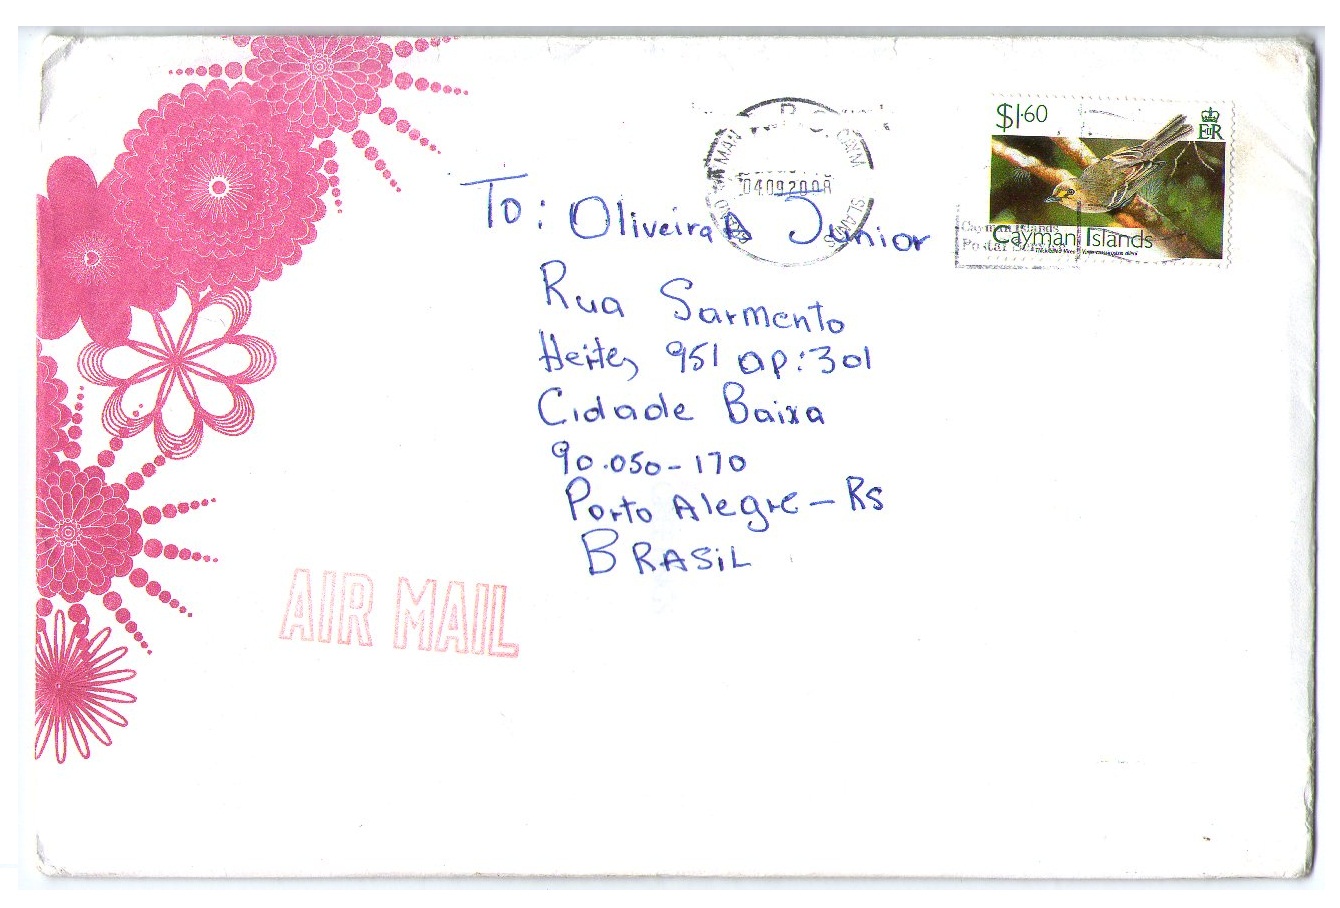 $1.60
EIIR
04092008
Cayman Islands
Cayman Islands
Postal
To: Oliveira A Junior
Rua Sarmento
Heites 951 ap:301
Cidade Baixa
90.050-170
Porto Alegre - RS
BRASiL
AIR MAIL